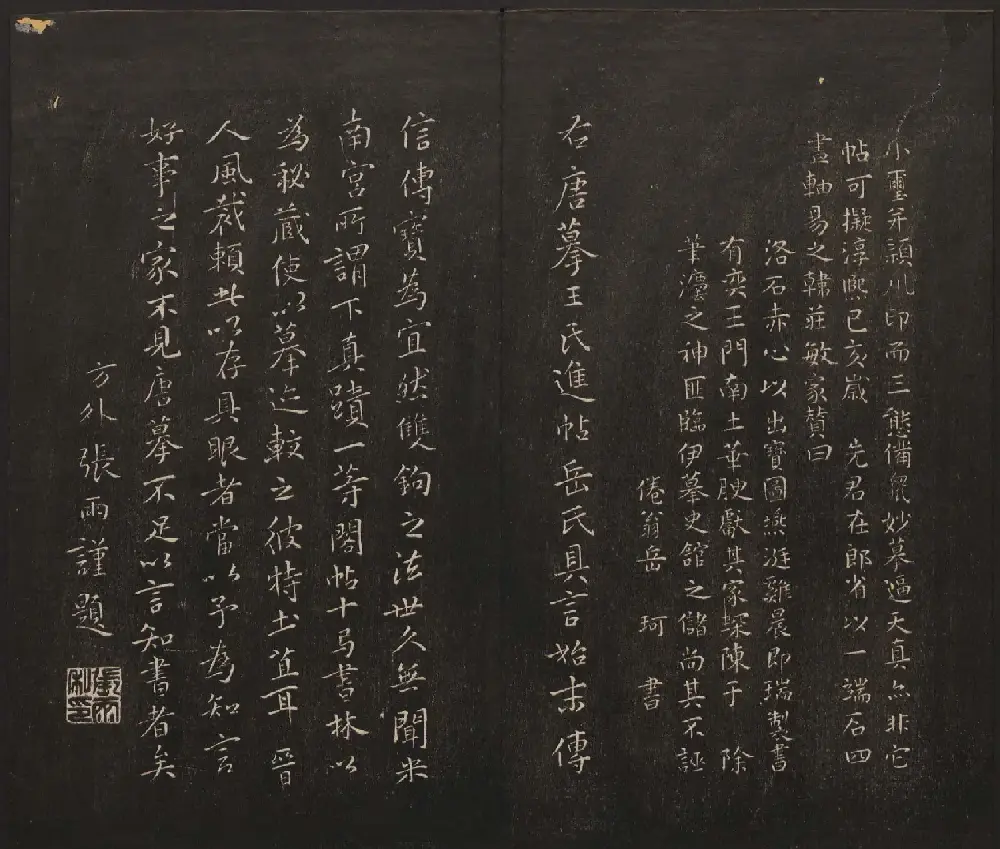 小璽并潁川印而三態備眾妙摹逼天真点非它
帖可擬淳熙己亥歲　先君在郎省以一端石四
畫軸易之韓莊敏家贊曰
洛石赤心以出寶圖燕涎雞晨即瑞製書
有奕王門南土華腴獻其家琛陳于　除
筆瀍之神匪臨伊摹史館之儲尚其不誣
倦翁岳　珂　書
右唐摹王氏進帖岳氏具言始末傳
信傳寶為宜然雙鉤之法世久無聞米
南宮所謂下真蹟一等閣帖十马書林以
為秘藏使以摹迹較之彼特土苴耳　晉
人風裁賴此以存具眼者當以予為知言
好事之家不見唐摹不足以言知書者矣
方外張雨謹題